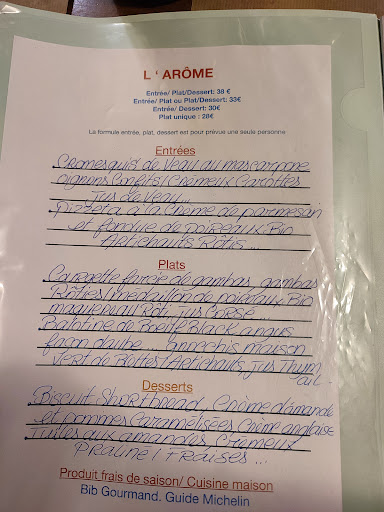 L'ARÔME
Entrée/ Plat/Dessert: 38 €
Entrée/ Plat ou Plat/Dessert: 33€
Entrée/ Dessert: 30€
Plat unique : 28€
La formule entrée, plat, dessert est pour prévue une seule personne
Entrées
Cromesquis de Veau au mascarpone
oignons Confits / Crémeux Carottes
jus de Veau ...
Pizzeta à la Crème de parmesan
et fondue de poireaux Bio
Artichauts Rôtis ...
Plats
Courgette farcie de gambas, gambas
Rôties / médaillon de poireaux Bio
maquereau Rôti, jus Corsé ...
Balotine de Boeuf Black angus
façon daube ... gnocchis maison
Vert de Blettes / Artichauts, jus Thym
ail -
Desserts
Biscuit Shortbread Crème d'amande
et pommes Caramélisées Crème anglaise
Tuiles aux amandes Crémeux
Praliné / Fraises ...
Produit frais de saison/ Cuisine maison
Bib Gourmand. Guide Michelin